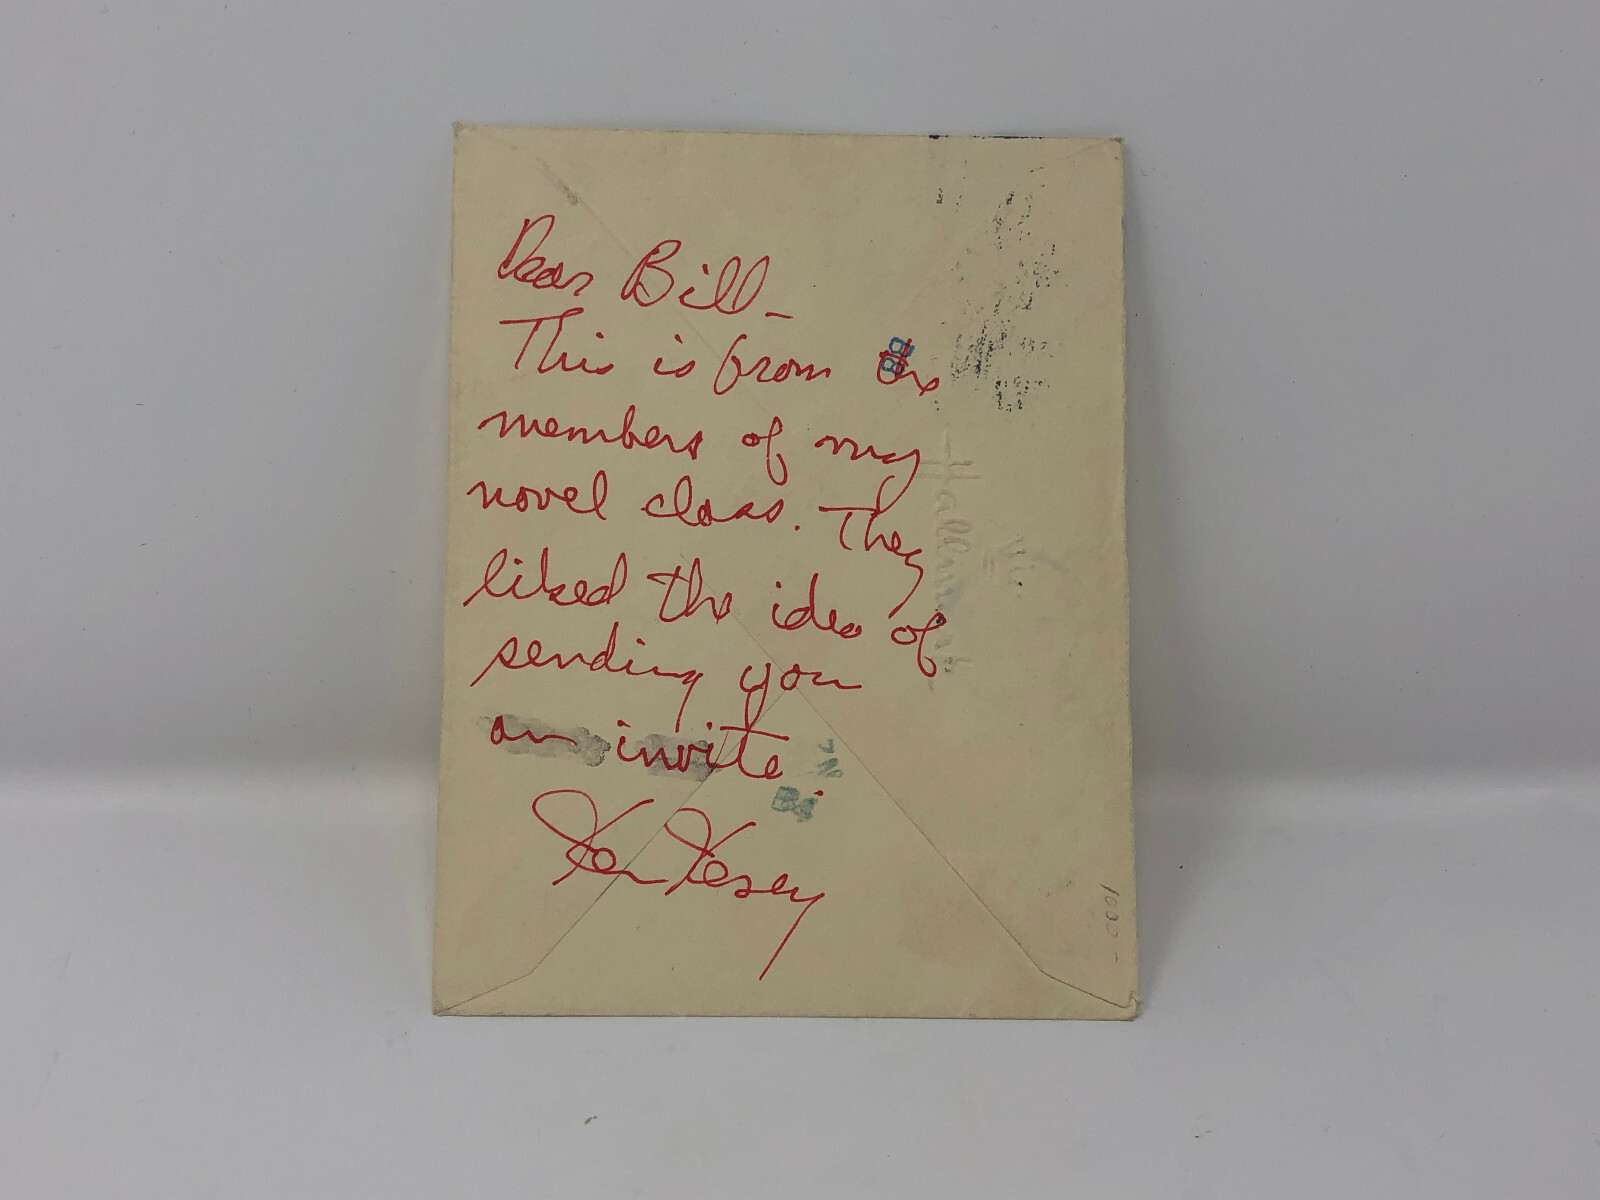 Dear Bill –
This is from the
members of my
novel class. They
liked the idea of
sending you
an invite.
Ken Kesey
Hallmark
1000 -